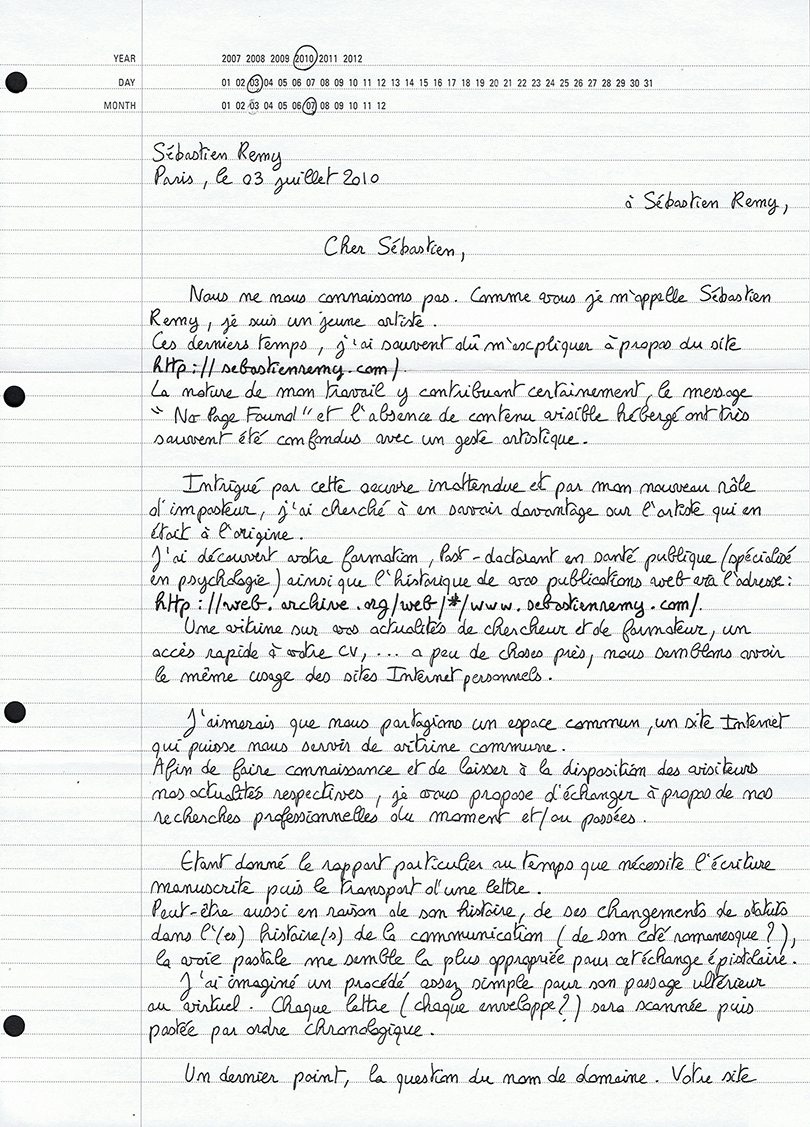 YEAR 2007 2008 2009 2010 2011 2012
DAY 01 02 03 04 05 06 07 08 09 10 11 12 13 14 15 16 17 18 19 20 21 22 23 24 25 26 27 28 29 30 31
MONTH 01 02 03 04 05 06 07 08 09 10 11 12
Sébastien Remy
Paris, le 03 juillet 2010
à Sébastien Remy,
Cher Sébastien,
Nous ne nous connaissons pas. Comme vous je m'appelle Sébastien
Remy, je suis un jeune artiste.
Ces derniers temps, j'ai souvent dû m'expliquer à propos du site
http://sebastienremy.com/.
La nature de mon travail y contribuant certainement, le message
"No Page Found" et l'absence de contenu visible hébergé ont très
souvent été confondus avec un geste artistique.
Intrigué par cette oeuvre inattendue et par mon nouveau rôle
d'imposteur, j'ai cherché à en savoir davantage sur l'artiste qui en
était à l'origine.
J'ai découvert votre formation, Post-doctorant en santé publique (spécialisé
en psychologie) ainsi que l'historique de vos publications web via l'adresse:
http://web.archive.org/web/*/www.sebastienremy.com/.
Une vitrine sur vos actualités de chercheur et de formateur, un
accès rapide à votre CV, ... a peu de choses près, nous semblons avoir
le même usage des sites Internet personnels.
J'aimerais que nous partagions un espace commun, un site Internet
qui puisse nous servir de vitrine commune.
Afin de faire connaissance et de laisser à la disposition des visiteurs
nos actualités respectives, je vous propose d'échanger à propos de nos
recherches professionnelles du moment et/ou passées.
Etant donné le rapport particulier au temps que nécessite l'écriture
manuscrite puis le transport d'une lettre.
Peut-être aussi en raison de son histoire, de ses changements de statuts
dans l'(es) histoire(s) de la communication (de son côté romanesque?),
la voie postale me semble la plus appropriée pour cet échange épistolaire.
J'ai imaginé un procédé assez simple pour son passage ultérieur
au virtuel. Chaque lettre (chaque enveloppe?) sera scannée puis
postée par ordre chronologique.
Un dernier point, la question du nom de domaine. Votre site